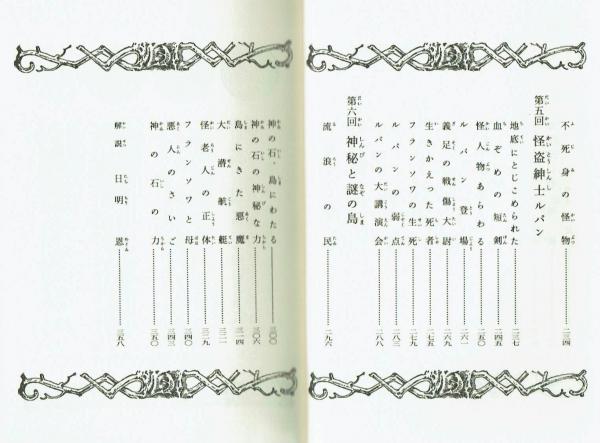 不死身の怪物 二三四
第五回 怪盗紳士ルパン
地底にとじこめられた 二三七
血ぞめの短剣 二四五
怪人物あらわる 二五〇
ルパン登場 二六一
義足の戦傷大尉 二六九
生きかえった死者 二七五
フランソワの生死 二七九
ルパンの弱点 二八三
ルパンの大講演会 二八八
第六回 神秘と謎の島
流浪の民 二九六
神の石、島にわたる 三〇〇
神の石の神秘な力 三〇六
島にきた悪魔 三一四
大潜航艇 三二一
怪老人の正体 三二九
フランソワと母 三四〇
悪人のさいご 三四三
神の石の力 三五〇
解説 日明恩 三五八